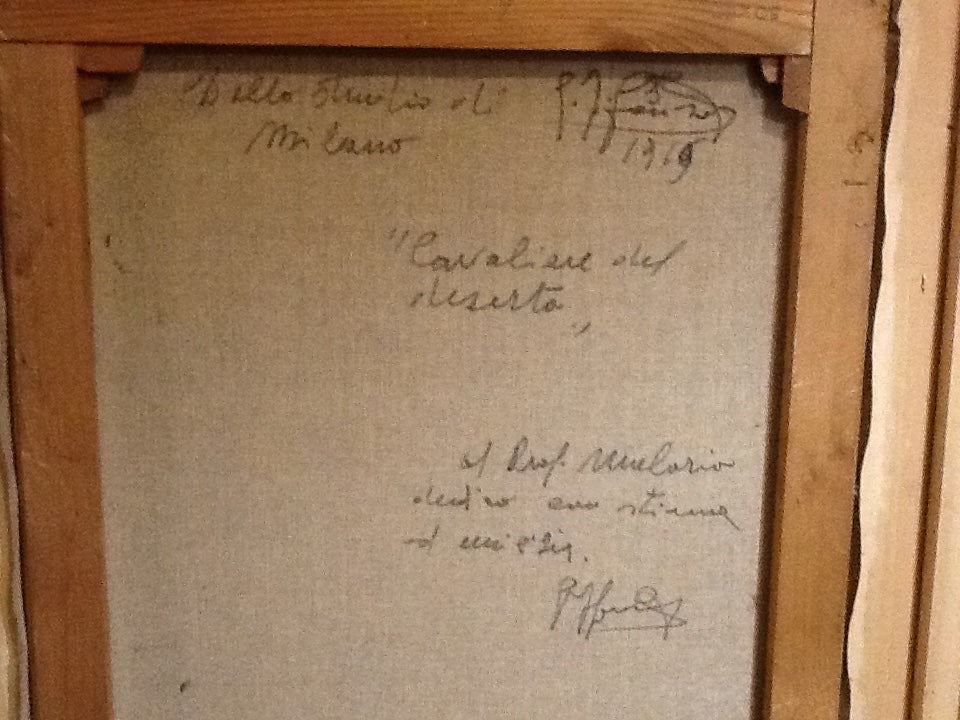 Dallo Studio di
Milano
1919
"Cavaliere del
deserto
"
al Prof.
dedico con stima
ed amicizia.